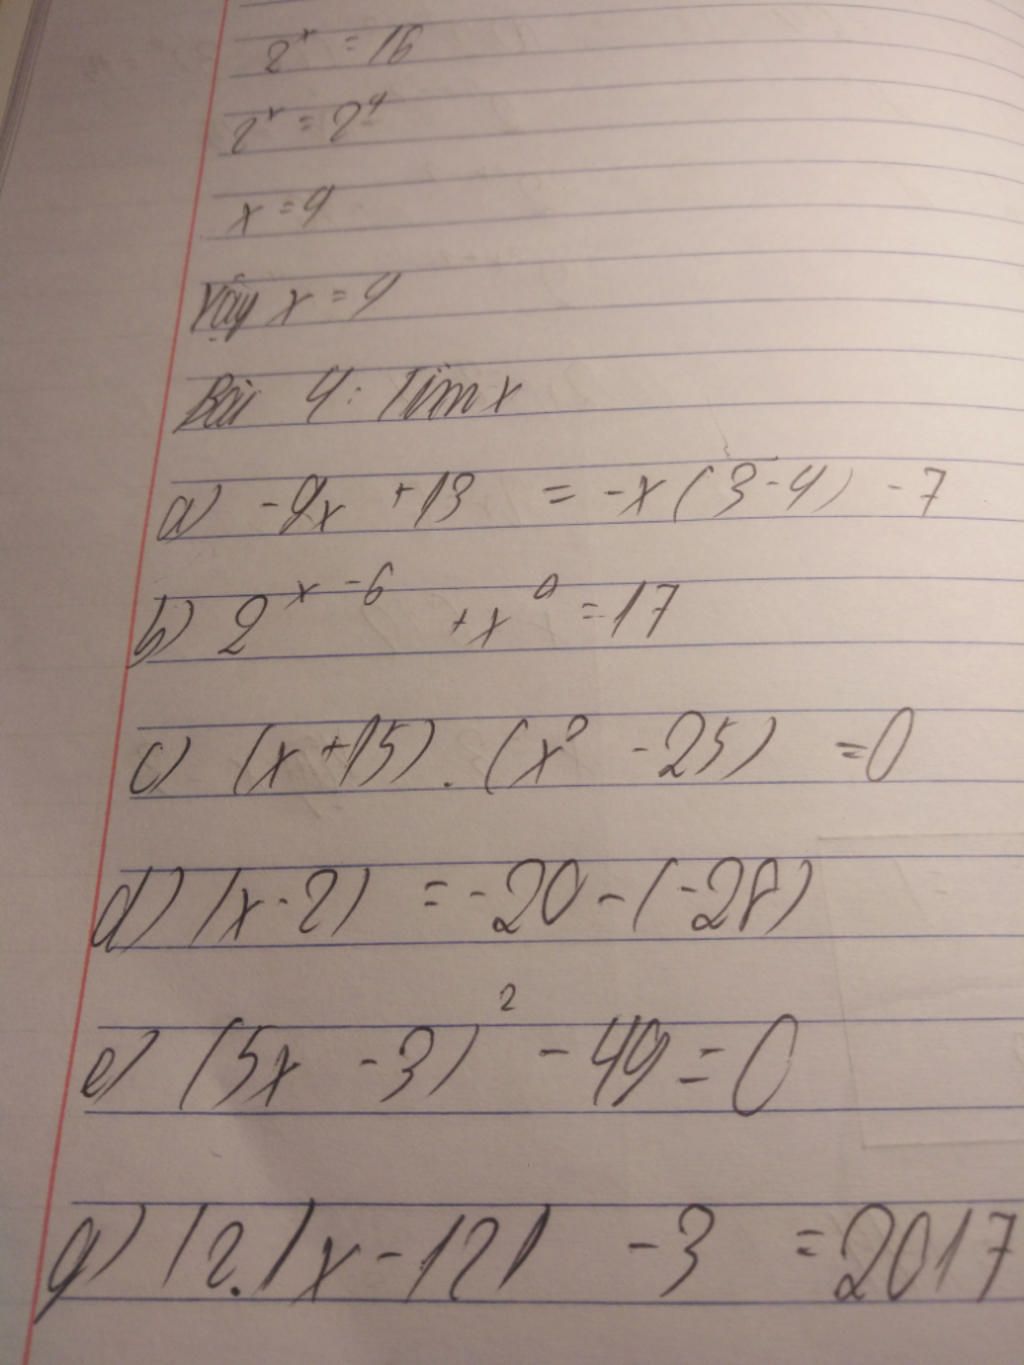 2ˣ = 16
2ˣ = 2⁴
x = 4
Vậy x = 4
Bài 4: Tìm x
a) -2x + 13 = -x(3-4) - 7
b) 2ˣ⁻⁶ + x⁰ = 17
c) (x+15).(x² - 25) = 0
d) |x-2| = -20-(-28)
e) (5x - 3)² - 49 = 0
g) |2.|x-12| - 3 = 2017